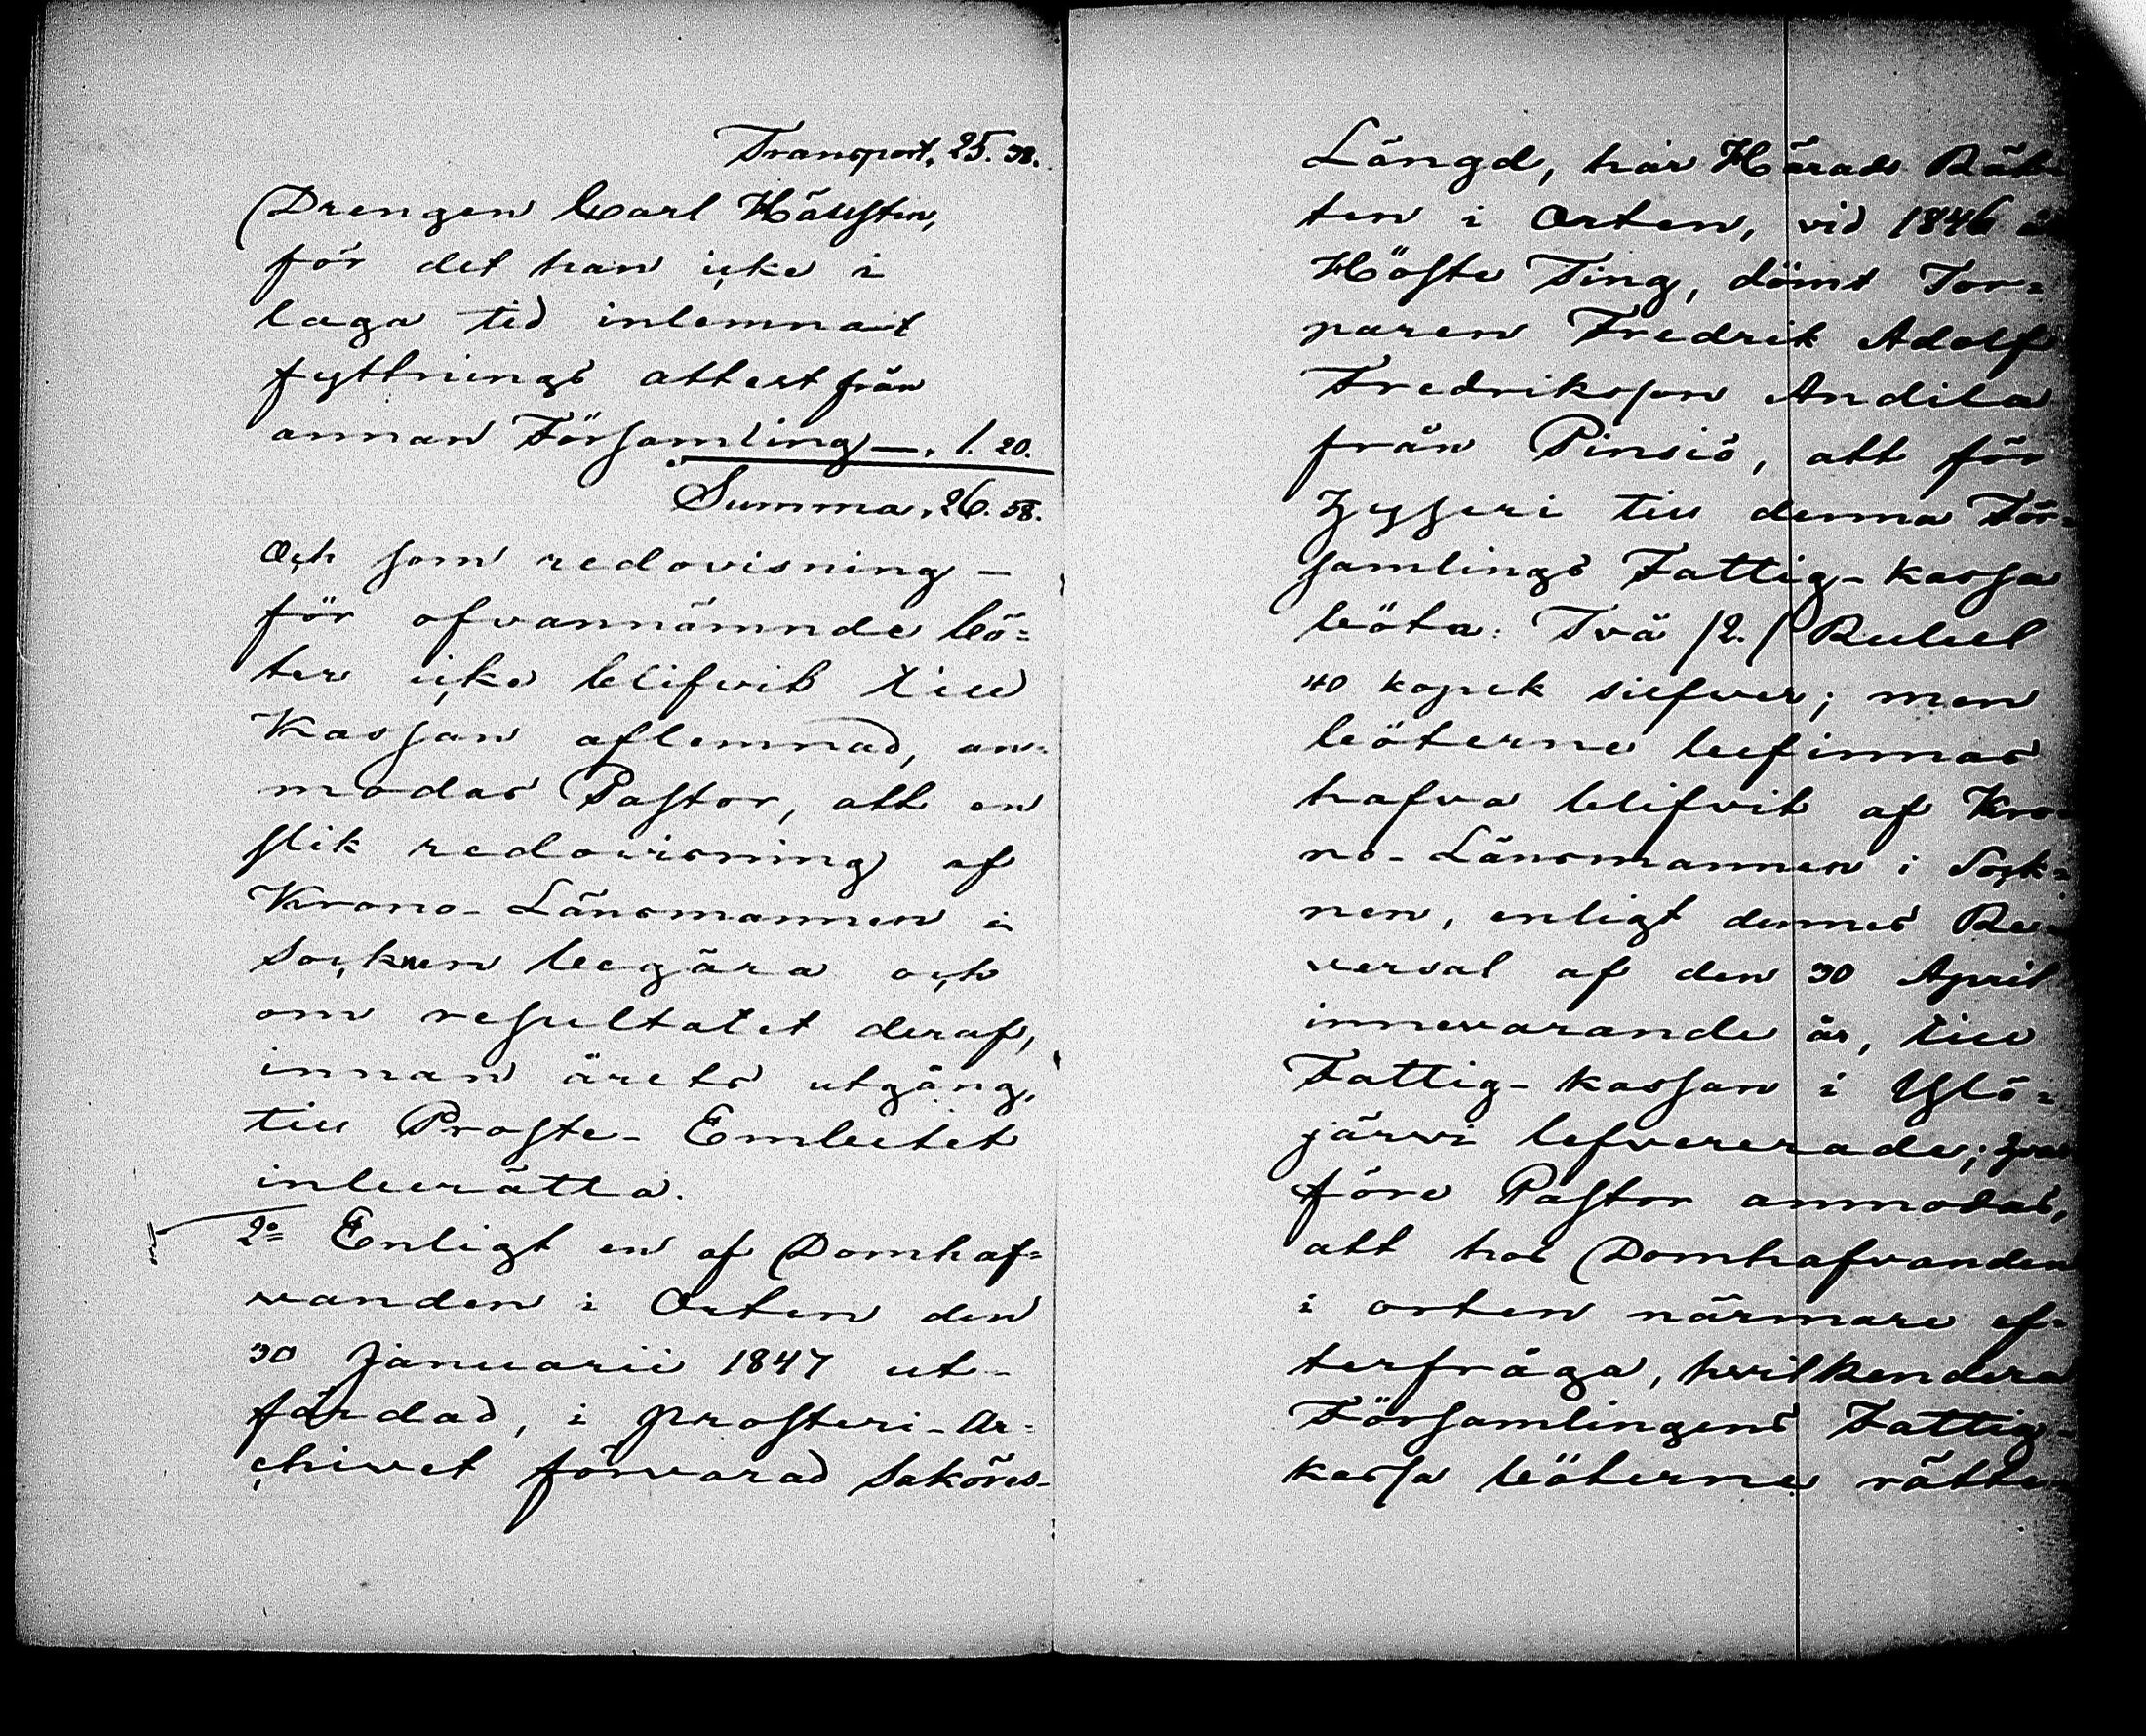 Transport, 25. 38.
Drengen Carl Hällsten,
för det han icke i
laga tid inlemnat
fyttnings attest från
annan Församling —, 1. 20.
Summa, 26. 58.
Och som redovisning —
för ofvannämnde bö=
ter icke blifvit till
Kassan aflemnad, an=
modas Pastor, att en
slik redovisning af
Krono-Länsmannen i
Socknen begära och
om resultatet deraf,
innan årets utgång,
till Proste-Embetet
inberätta.
2:o Enligt en af Domhaf=
vanden i Orten den
30 Januarii 1847 ut-
färdad, i prosteri-Ar=
chivet förvarad Saköres-
Längd, har Härads Rät
ten i Orten, vid 1846 å
Höste Ting, dömt Tor=
paren Fredrik Adolf
Fredriksson Andila
från Pinsiö, att för
till denna För=
samlings Fattig-kassa
böta: Två /2./ Rubel
40 kopek silfver; men
böterne befinnas
hafva blifvit af Kro=
no-Länsmannen i Sock=
nen, enligt dennes Re=
versal af den 30 April
innevarande år, till
Fattig-kassan i Ylö=
järvi lefvererade; hvar
före Pastor anmodas,
att hos Domhafvanden
i orten närmare ef=
terfråga, hvilkendera
Församlingens Fattig-
kassa böterne rätte